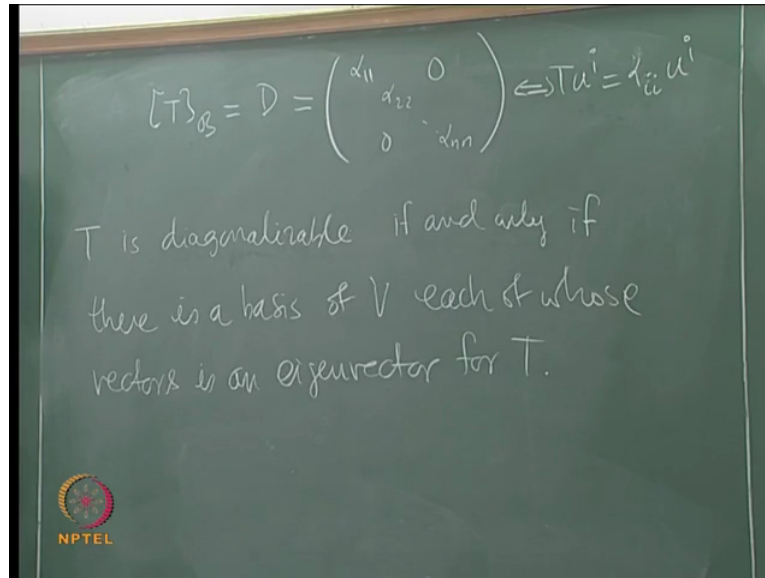 [T]_B = D = ( α₁₁ 0 α₂₂ 0 ⋱ αₙₙ ) ⇔ Tuⁱ = αᵢᵢ uⁱ
T is diagonalizable if and only if
there is a basis of V each of whose
vectors is an eigenvector for T.
NPTEL